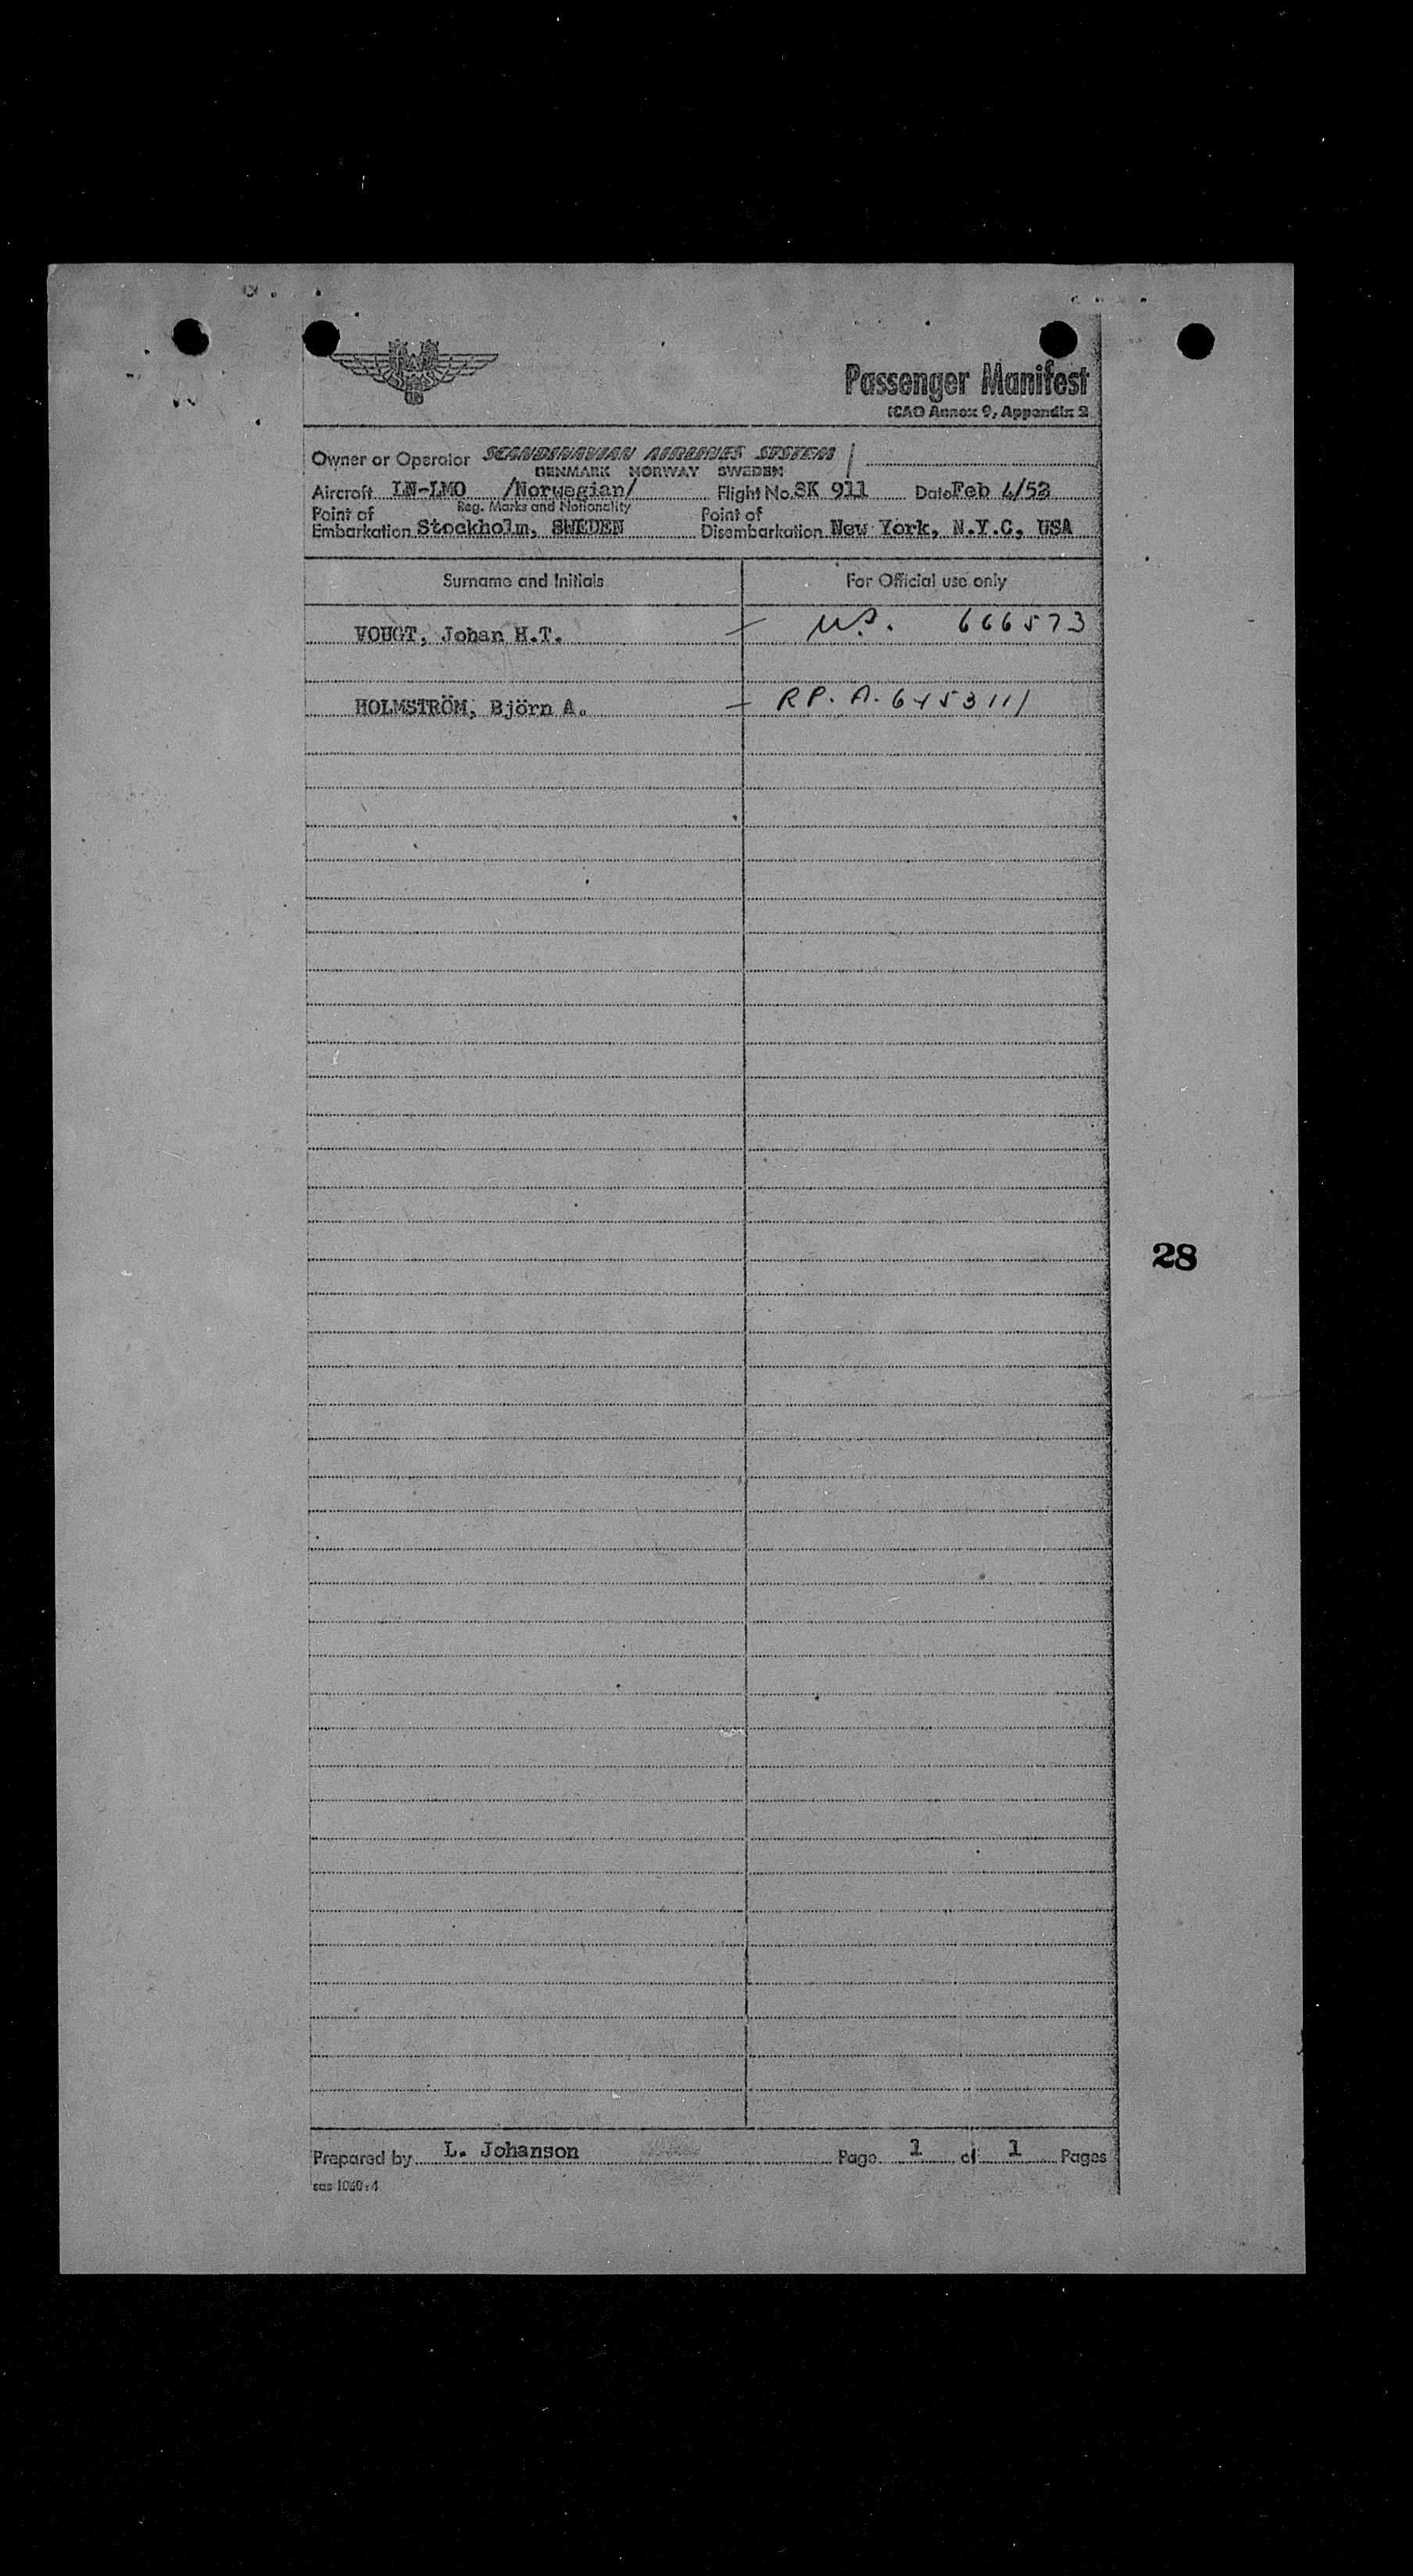 Passenger Manifest
ICAO Annex 9, Appendix 2
Owner or Operator SCANDINAVIAN AIRLINES SYSTEM
DENMARK NORWAY SWEDEN
Aircraft LN-LMO /Norwegian/ Flight No. SK 911 Date Feb 4/52
Reg. Marks and Nationality
Point of Embarkation Stockholm, SWEDEN Point of Disembarkation New York, N.Y.C, USA
Surname and Initials For Official use only
VOUGT, Johan H.T. 666573
HOLMSTRÖM, Björn A. RP. A.
28
Prepared by L. Johanson Page 1 of 1 Pages